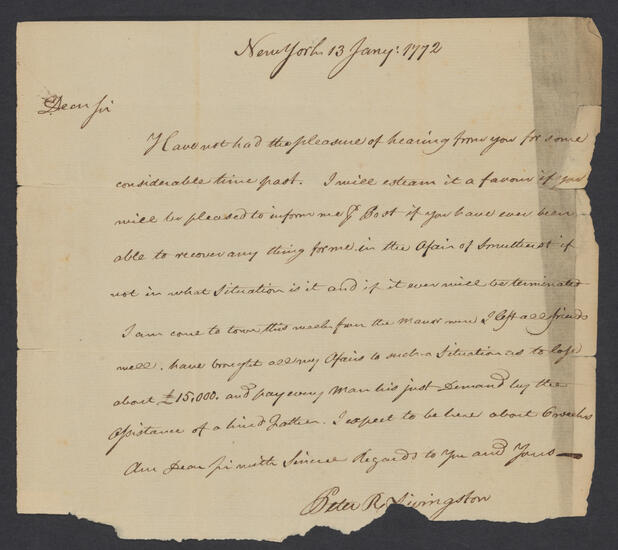 New York 13 Jany: 1772
Dear Sir
Have not had the pleasure of hearing from you for some
considerable time past. I will esteam it a favour if you
will be pleased to inform me ⅌ Post if you have ever been
able to recover any thing for me in the Afair of if
not in what Situation is it and if it ever will be terminated
I am come to town this week from the Manor were I left all friends
well. have brought all my Afairs to such a Situation as to
about £15,000. and pay every Man his just Demand by the
Assistance of a kind Father. I expect to be here about 6 weeks
Am Dear Sir with Sincere Regards to You and Yours —
Peter R Livingston